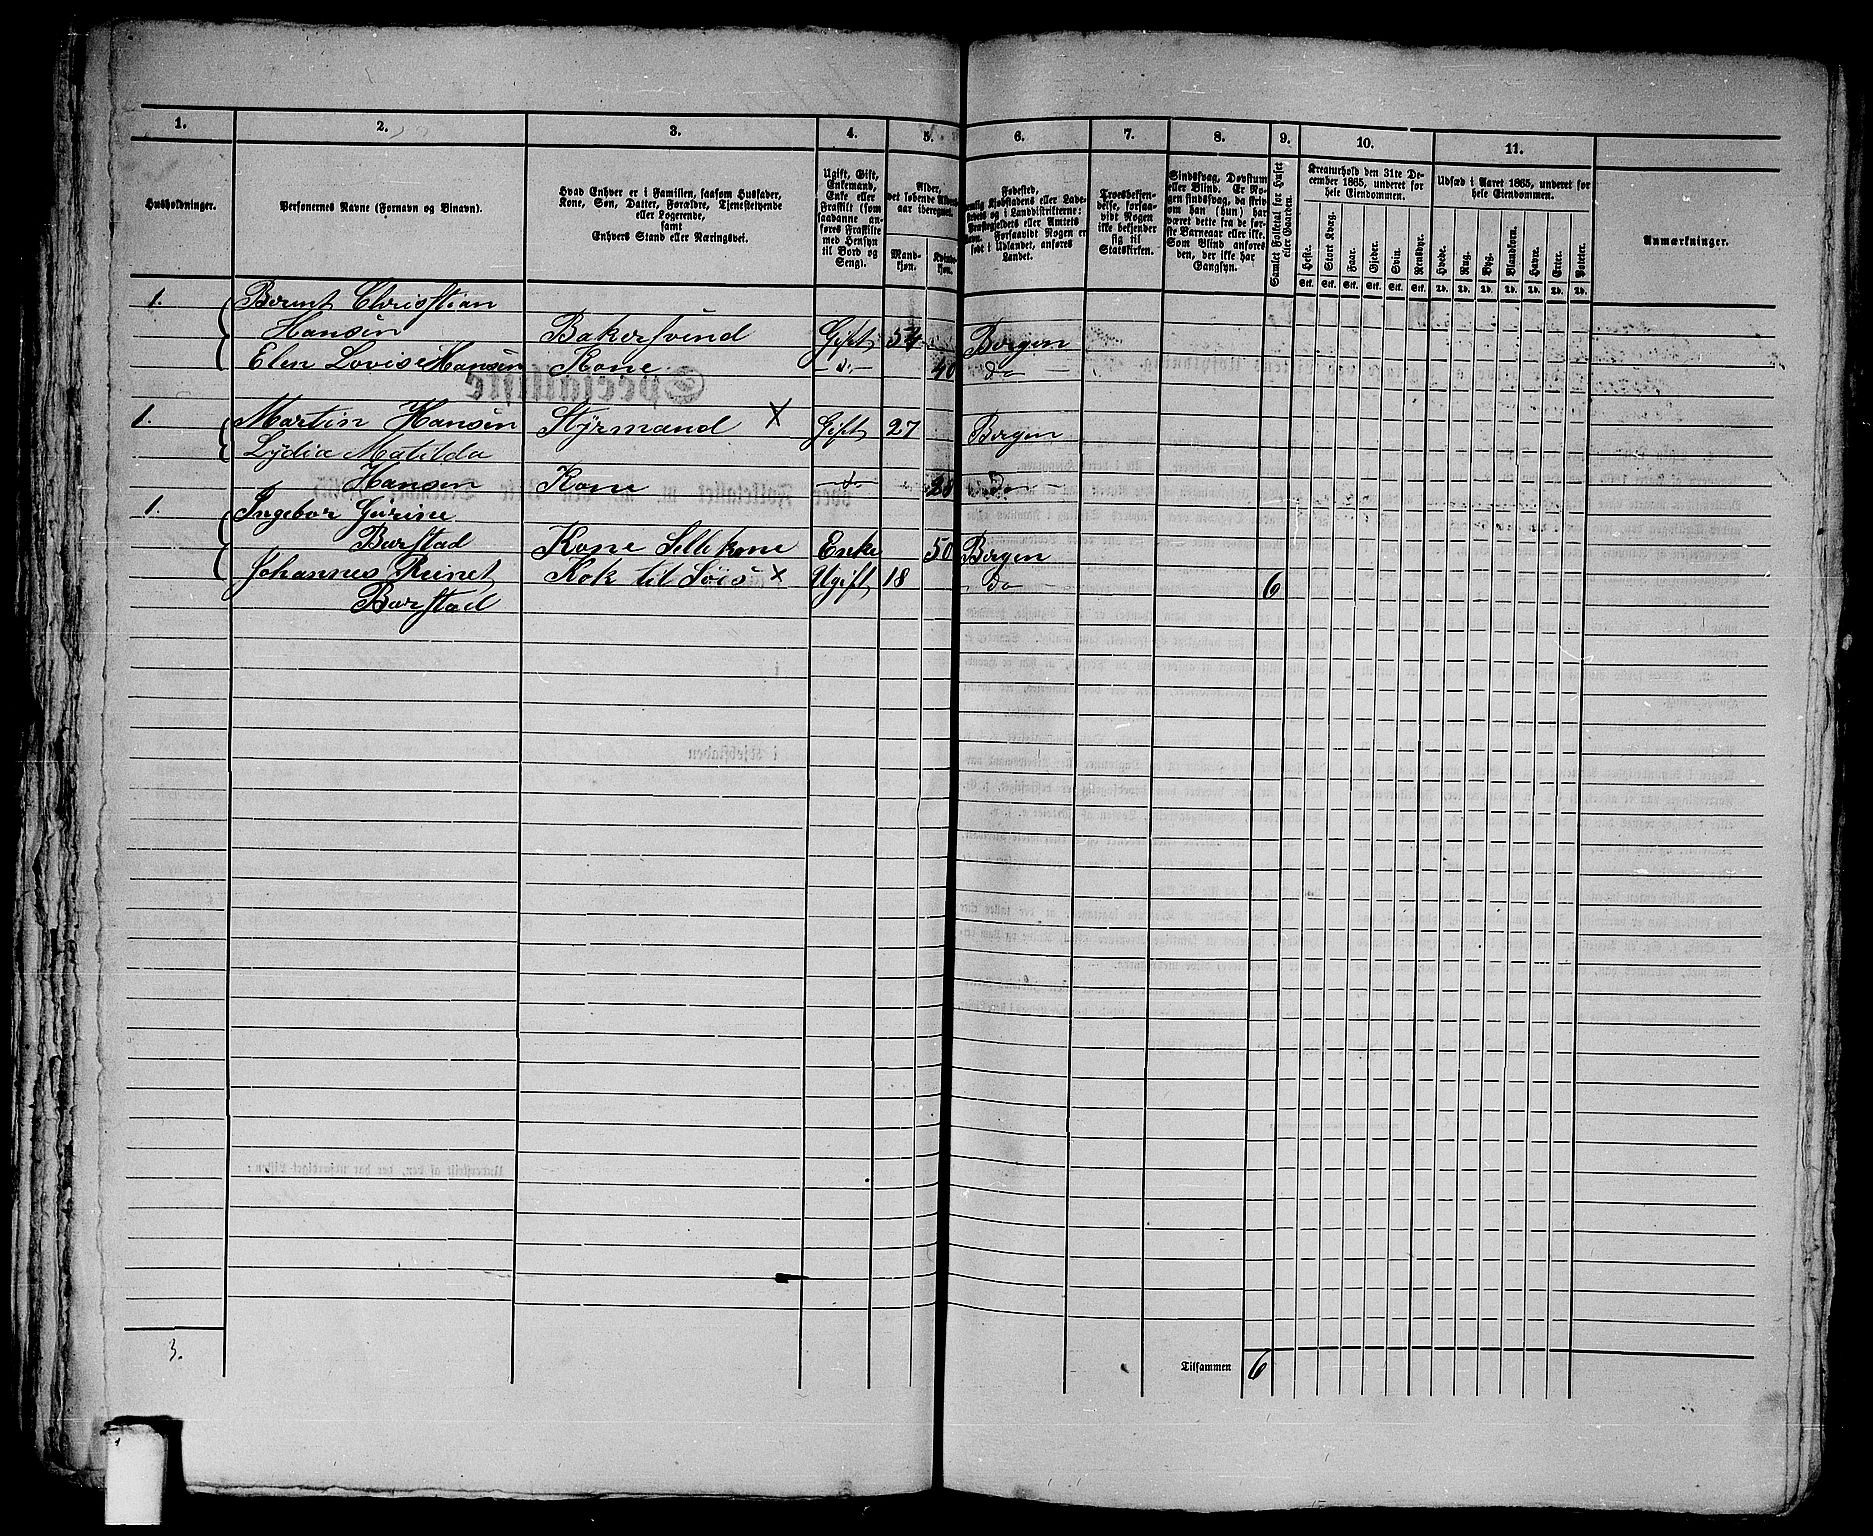 1. 2. 3. 4. 5. 6. 7. 8. 9. 10. 11.
Husholdninger.
Personernes Navne (Fornavn og Binavn).
Hvad Enhver er i Familien, saasom Husfader,
Kone, Søn, Datter, Forældre, Tjenestetyende
eller Logerende,
samt
Enhvers Stand eller Næringsvei.
Ugift, Gift,
Enkemand,
Enke eller
Fraskilt (som
saadanne an-
føres Fraskilte
med Hensyn
til Bord og
Seng).
Alder,
det løbende Alders-
aar iberegnet.
Mand-
kjøn.
Kvinde-
kjøn.
Fødested,
nemlig Kjøbstadens eller Lade-
stedets og i Landdistrikterne:
Præstegjeldets eller Amtets
Navn. Forsaavidt Nogen er
født i Udlandet, anføres
Landet.
Troesbekjen-
delse, forsaa-
vidt Nogen
ikke bekjender
sig til
Statskirken.
Sindssvag, Døvstum
eller Blind. Er No-
gen sindssvag, da skriv
om han (hun) har
været dette fra de før-
ste Barneaar eller ikke.
Som Blind anføres
den, der ikke har
Gangsyn.
Samlet Folketal for Huset
eller Gaarden.
Kreaturhold den 31te De-
cember 1865, underet for
hele Eiendommen.
Heste. Stort Kvæg. Faar. Gjeder. Sviin. Rensdyr.
Stk. Stk. Stk. Stk. Stk. Stk.
Udsæd i Aaret 1865, underet for
hele Eiendommen.
Hvede. Rug. Byg. Blandkorn. Havre. Erter. Poteter.
Td. Td. Td. Td. Td. Td. Td.
Anmærkninger.
1. Bernt Christian
Hansen Bakersvend Gift 54 Bergen
Elen Lovise Hansen Kone - do - 40 do -
1. Martin Hansen Styrmand X Gift 27 Bergen
Lydia Matilda
Hansen Kone - do 28 Do -
1. Ingebor Gurine
Barstad Kone Enke 50 Bergen
Johannes Barstad Kok til Søis X Ugift 18 do - 6
3.
Tilsammen 6